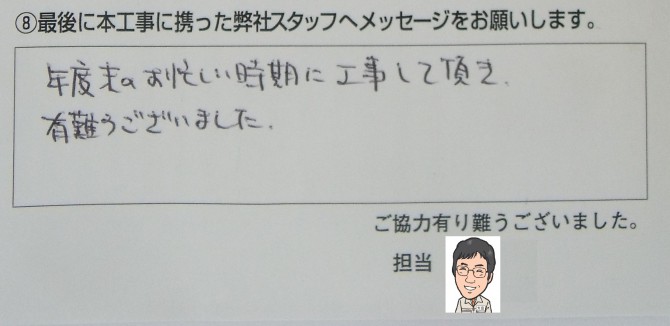 ⑧最後に本工事に携った弊社スタッフへメッセージをお願いします。
年度末のお忙しい時期に工事して頂き、
有難うございました。
ご協力有り難うございました。
担当